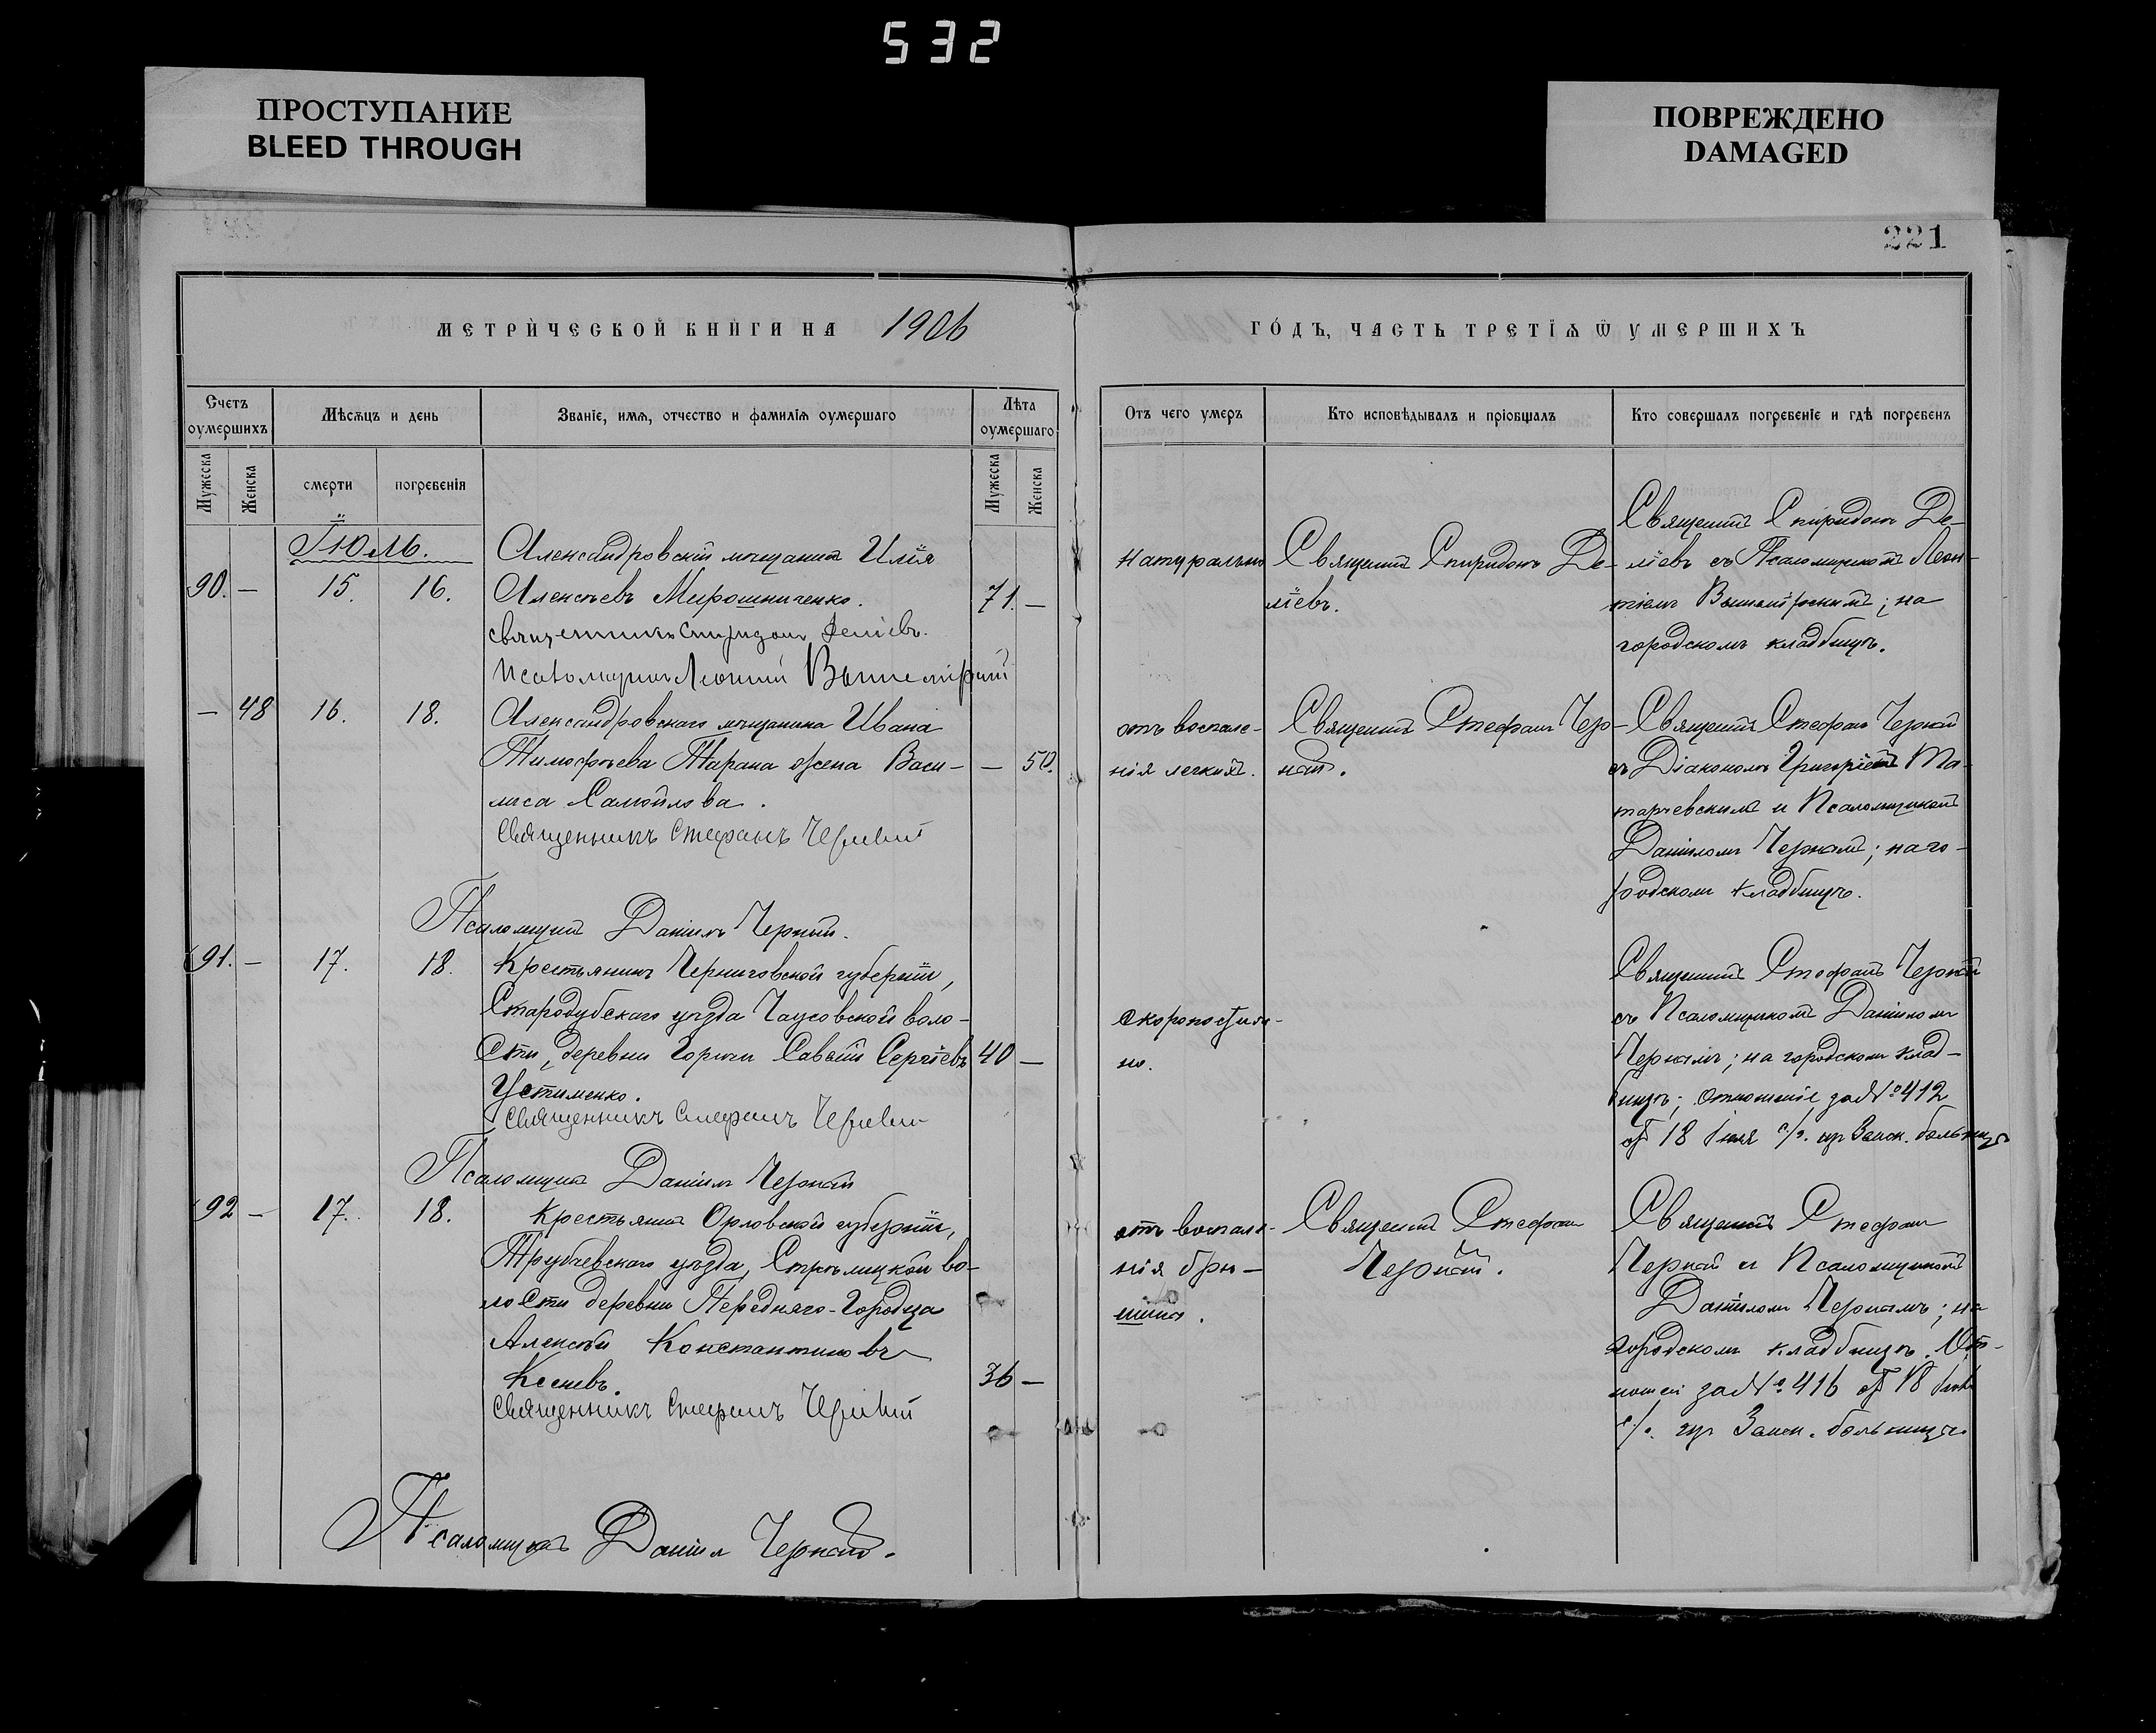 532
ПРОСТУПАНИЕ
BLEED THROUGH
ПОВРЕЖДЕНО
DAMAGED
221
МЕТРИ́ЧЕСКОЙ КНИ́ГИ НА 1906
ГО́ДЪ, ЧАСТЬ ТРЕТІѦ Ѿ УМЕРШИХЪ
Счетъ оумершихъ
Мѣсѧцъ и день
Званіе, имѧ, отчество и фамиліѧ оумершаго
Лѣта оумершаго
Мужеска
Женска
смерти
погребенія
Мужеска
Женска
Отъ чего умеръ
Кто исповѣдывалъ и пріобщалъ
Кто совершалъ погребеніе и гдѣ погребенъ
Іюль.
Александровскій мѣщанинъ Илія
90. — 15. 16. Алексѣевъ Мирошниченко. 71. —
священникъ Спиридонъ Деліевъ.
Псаломщикъ Леонтій
натурально
Священникъ Спиридонъ Де-
ліевъ.
Священникъ Спиридонъ Де-
ліевъ съ Псаломщикомъ Леон-
тіемъ ; на
городскомъ кладбищѣ.
— 48 16. 18. Александровскаго мѣщанина Ивана
Тимофѣева Тарана жена Васи- — 50.
лиса Самойлова.
Священникъ Стефанъ Черный
Псаломщикъ Даніилъ Черный.
отъ воспале-
нія легкихъ.
Священникъ Стефанъ Чер-
ный.
Священникъ Стефанъ Черный
съ Діакономъ Григоріемъ
и Псаломщикомъ
Даніиломъ Чернымъ; на го-
родскомъ кладбищѣ.
91. — 17. 18. Крестьянинъ Черниговской губерніи,
Стародубскаго уѣзда Чаусовской воло-
сти, деревни Савватій Сергіевъ 40 —
Устименко.
Священникъ Стефанъ Черный
Псаломщикъ Даніилъ Черный
скоропостиж-
но.
Священникъ Стефанъ Черный
съ Псаломщикомъ Даніиломъ
Чернымъ; на городскомъ клад-
бищѣ; отношеніе за № 412
отъ 18 Іюля с/г. больницы
92 — 17. 18. Крестьянинъ Орловской губерніи,
Трубчевскаго уѣзда, Стрѣлицкой во-
лости деревни Передняго-Городца
Алексѣй Константиновъ
36 —
Священникъ Стефанъ Черный
Псаломщикъ Даніилъ Черный.
отъ воспале-
нія брю-
шины.
Священникъ Стефанъ
Черный.
Священникъ Стефанъ
Черный съ Псаломщикомъ
Даніиломъ Чернымъ; на
городскомъ кладбищѣ. От-
ношен за № 416 отъ 18 Іюля
с/г. больницы